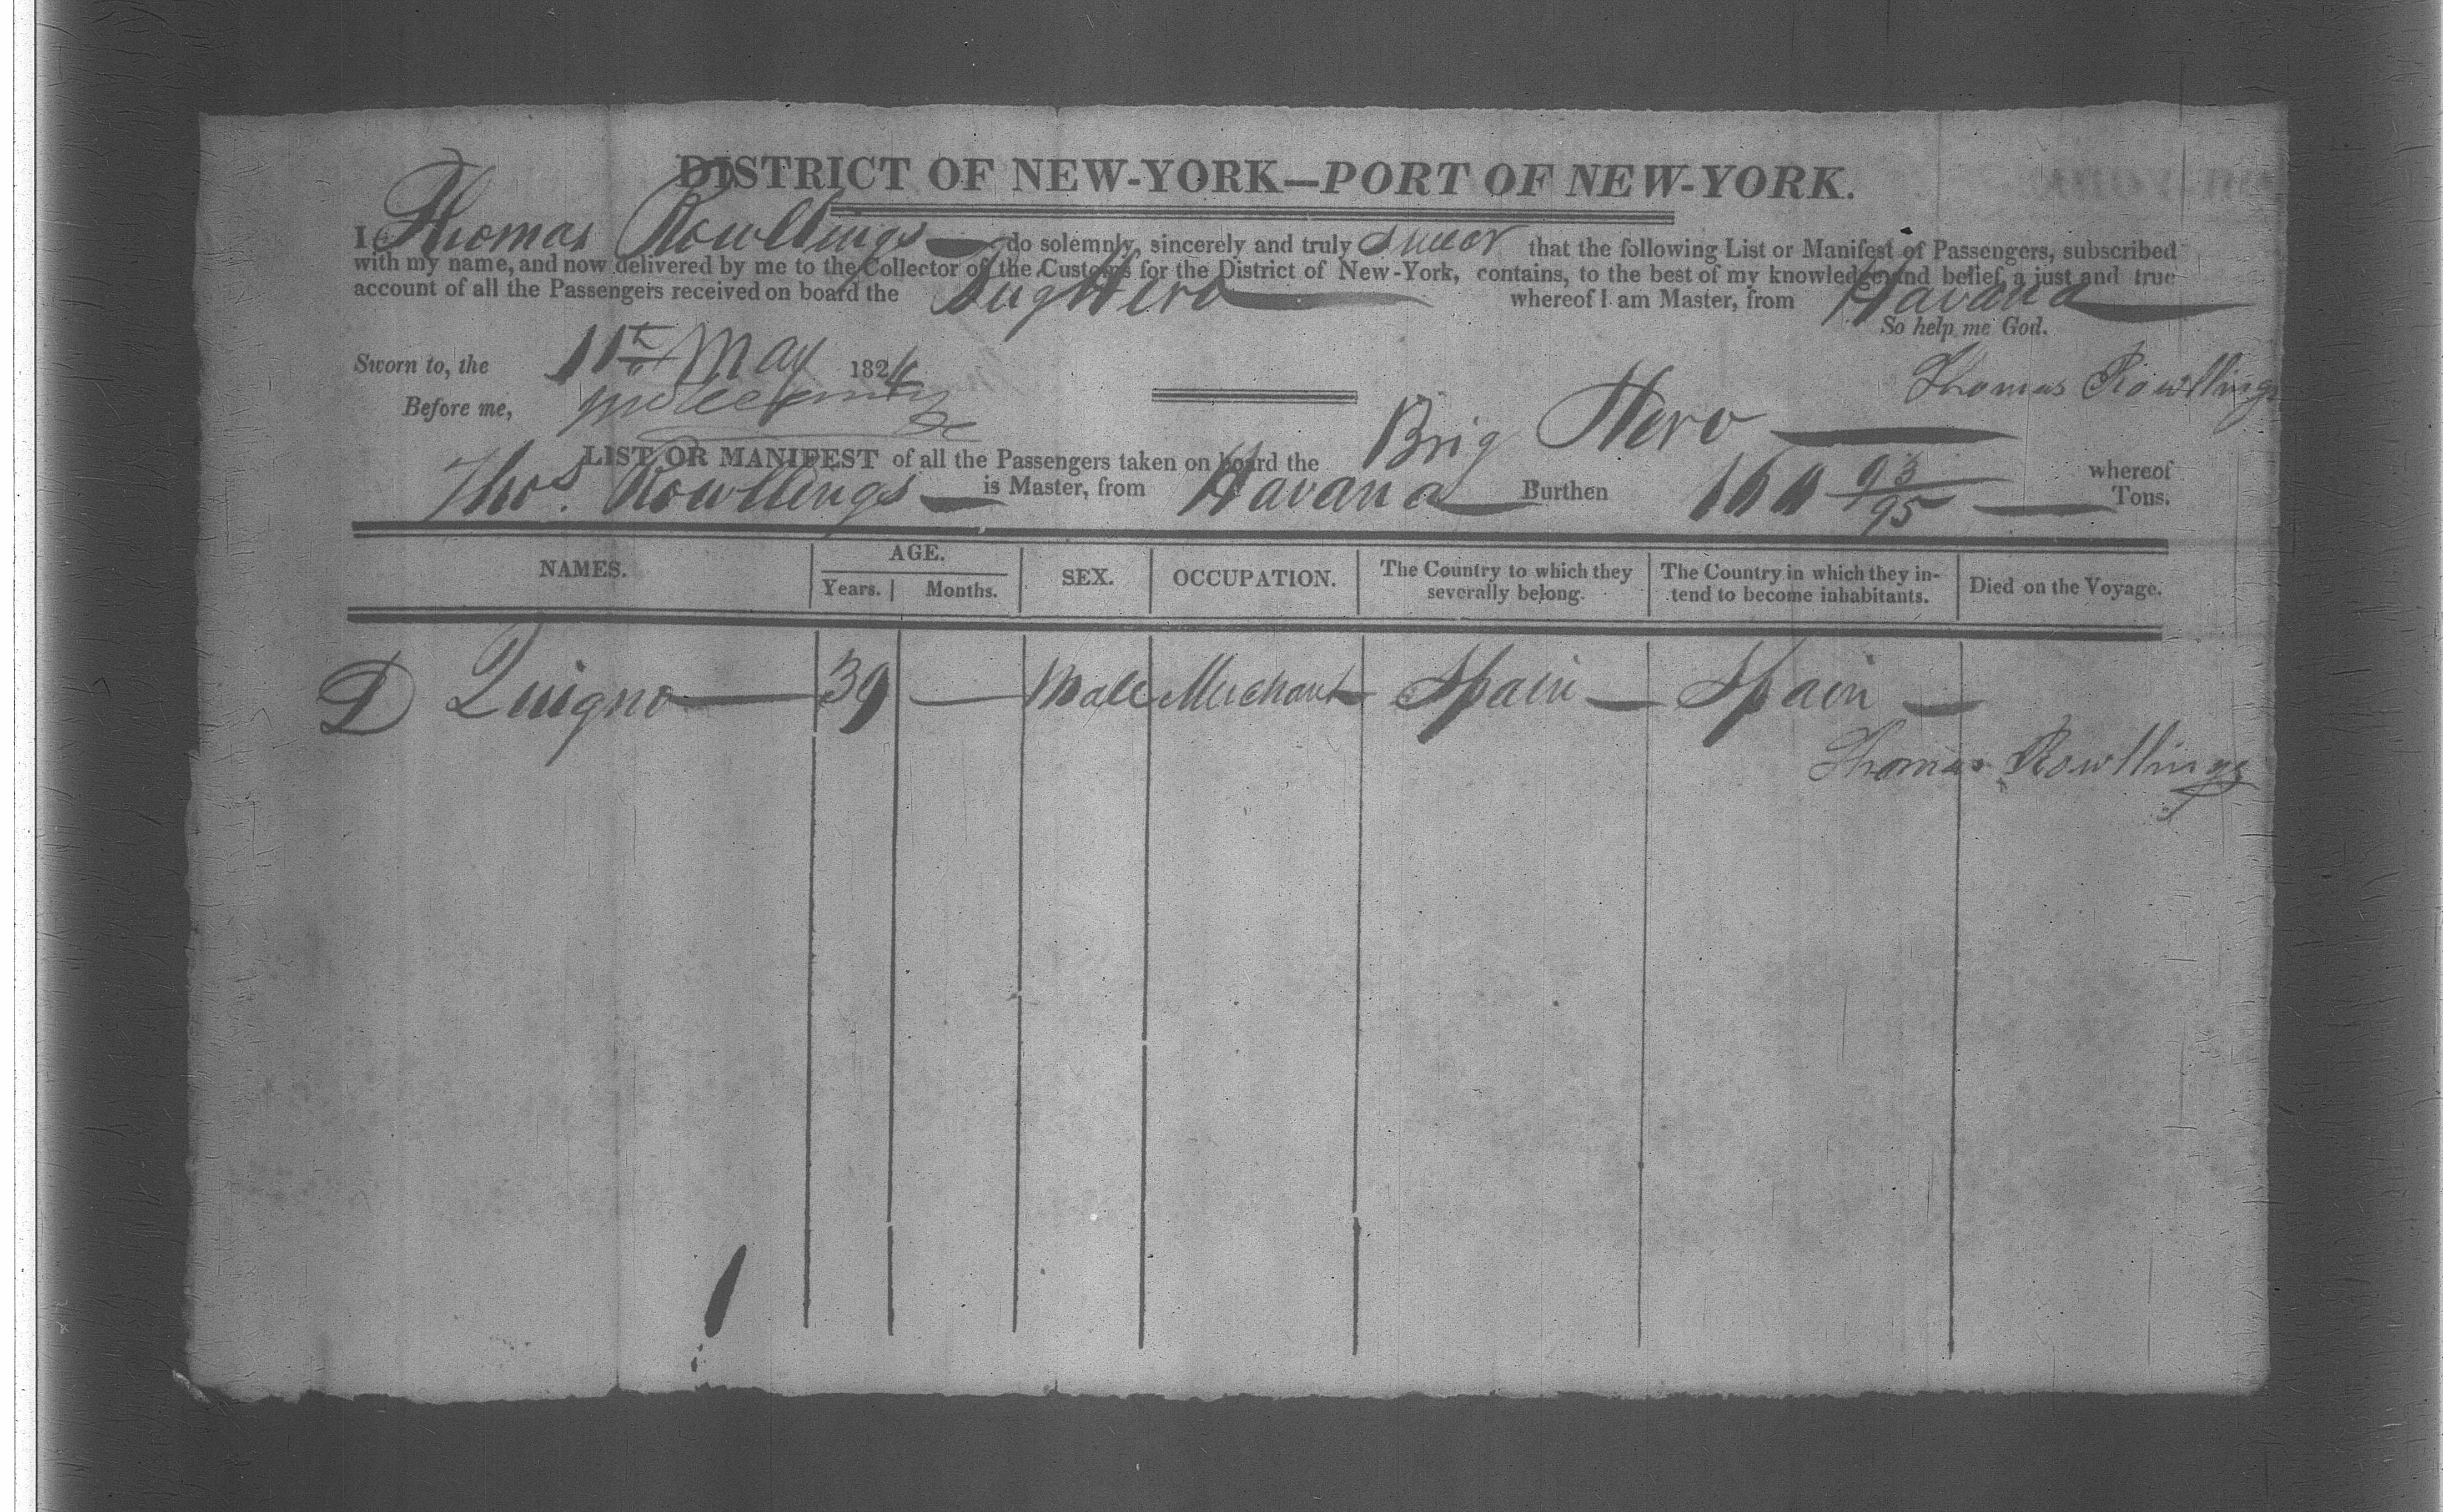 DISTRICT OF NEW-YORK—PORT OF NEW-YORK.
I Thomas Rowllings — do solemnly, sincerely and truly swear that the following List or Manifest of Passengers, subscribed
with my name, and now delivered by me to the Collector of the Customs for the District of New-York, contains, to the best of my knowledge and belief, a just and true
account of all the Passengers received on board the Brig Hero — whereof I am Master, from Havana —
So help me God.
Sworn to, the 11th May 1824 Thomas Rowllings
Before me,
LIST OR MANIFEST of all the Passengers taken on board the Brig Hero — whereof
Thos. Rowllings — is Master, from Havana — Burthen 93/95 — Tons.
NAMES. AGE. Years. Months. SEX. OCCUPATION. The Country to which they severally belong. The Country in which they intend to become inhabitants. Died on the Voyage.
D Quigno — 39 — Male Merchant — Spain — Spain —
Thomas Rowllings
1